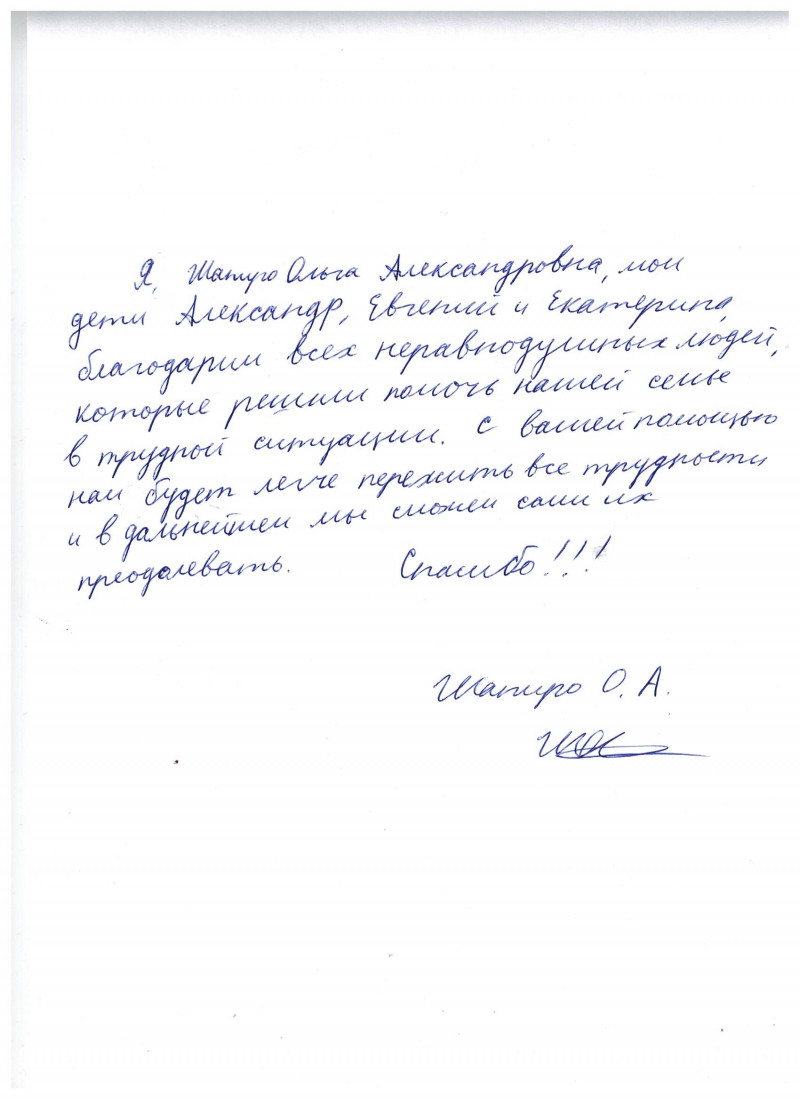 Я, Шапиро Ольга Александровна, мои
дети Александр, Евгений и Екатерина,
благодарим всех неравнодушных людей,
которые решили помочь нашей семье
в трудной ситуации. С вашей помощью
нам будет легче пережить все трудности
и в дальнейшем мы сможем сами их
преодолевать. Спасибо!!!
Шапиро О. А.